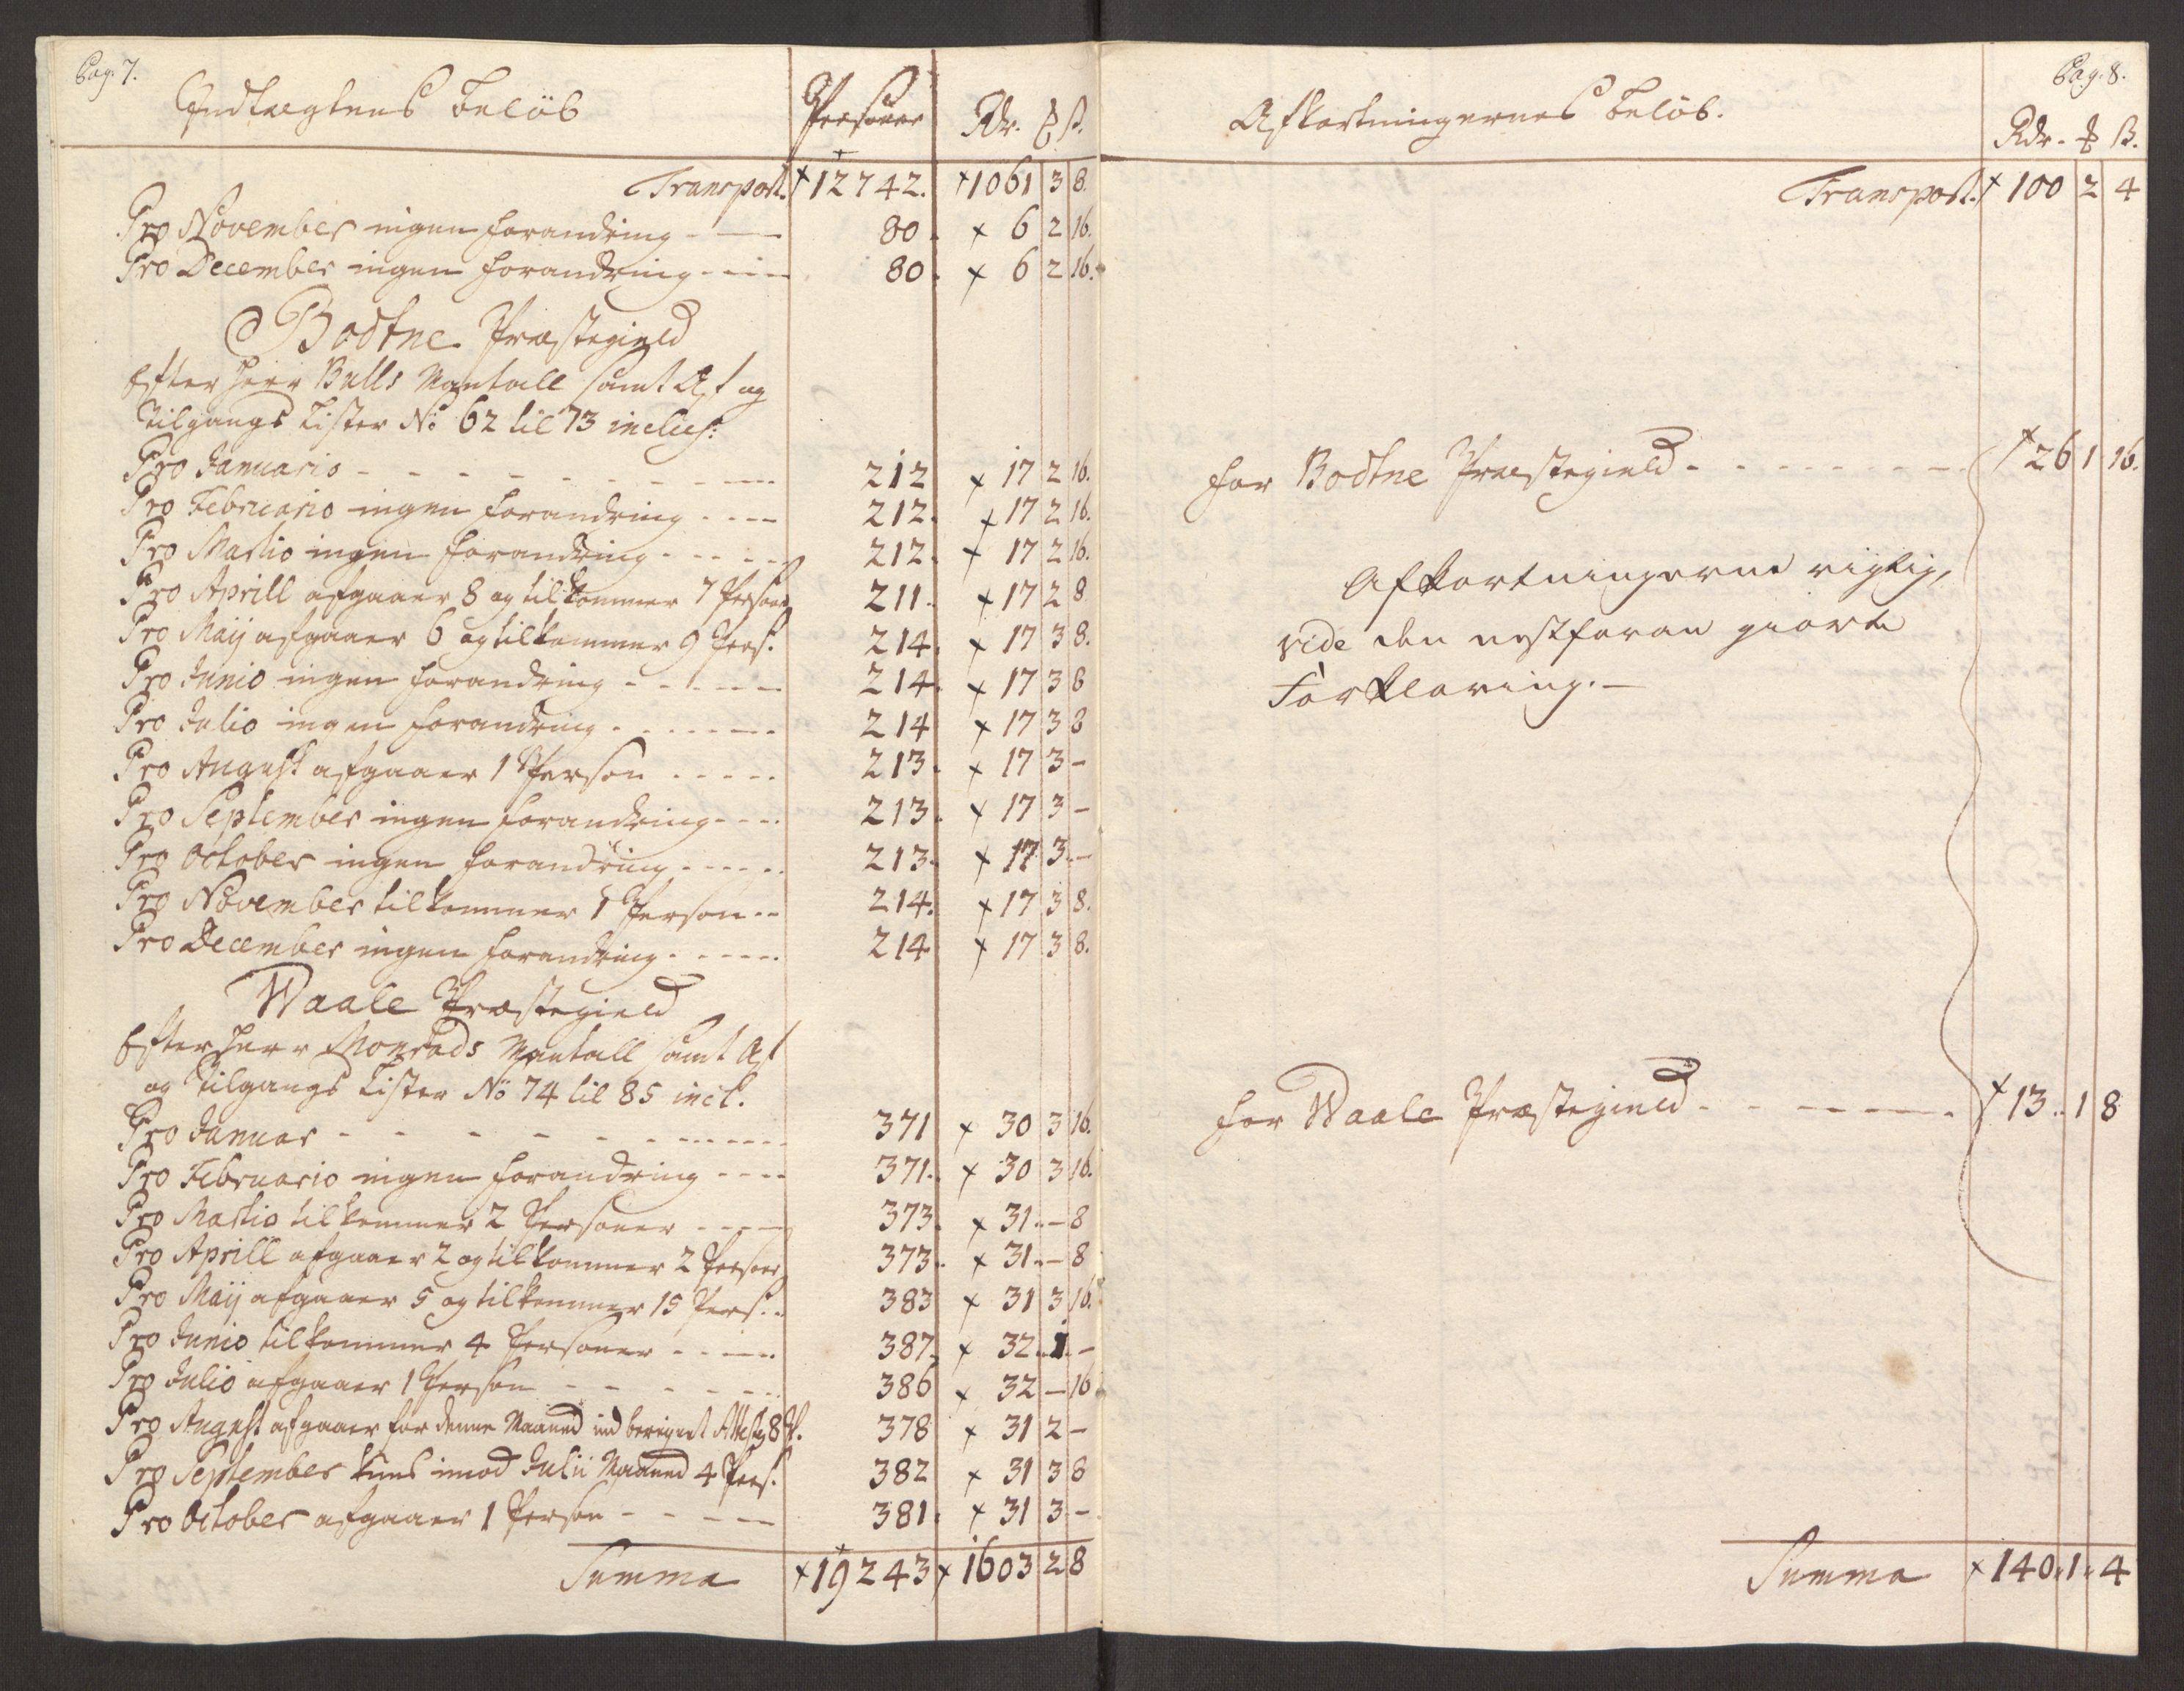 Pag: 7.
Indtægtens Beløb Personer Rdr. ß.
Transport. 12742. 1061 3 8.
Pro November ingen forandring - 80. 6 2 16.
Pro December ingen forandring - 80. 6 2 16.
Bodtne Præstegield
Efter Herr Bulls Mantall samt Af og
tilgangs Lister No 62 til 73 inclus:
Pro Januario - 212 17 2 16.
Pro Februario ingen forandring - 212. 17 2 16.
Pro Martio ingen forandring - 212. 17 2 16.
Pro Aprill afgaaer 8 og tilkommer 7 Personer 211. 17 2 8
Pro Maij afgaaer 6 og tilkommer 9 Pers. 214. 17 3 8.
Pro Junio ingen forandring - 214. 17 3 8
Pro Julio ingen forandring - 214 17 3 8
Pro August afgaaer 1 Person - 213. 17 3 -
Pro September ingen forandring - 213. 17 3 -
Pro October ingen forandring - 213. 17 3 -
Pro November tilkommer 1 Person - 214. 17 3 8.
Pro December ingen forandring - 214 17 3 8.
Waale Præstegield
Efter Herr Monrads Mantall samt Af
og tilgangs Lister No 74 til 85 incl.
Pro Januar - 371 30 3 16.
Pro Februario ingen forandring - 371. 30 3 16.
Pro Martio tilkommer 2 Personer - 373. 31 - 8
Pro Aprill afgaaer 2 og tilkommer 2 Personer 373. 31 - 8
Pro Maij afgaaer 5 og tilkommer 15 Pers. 383 31 3 16.
Pro Junio tilkommer 4 Personer - 387. 32 1 -
Pro Julio afgaaer 1 Person - 386 32 - 16
Pro August afgaaer for denne Maaned 8 P. 378 31 2 -
Pro September imod Julii Maaned 4 Pers. 382 31 3 8
Pro October afgaaer 1 Person - 381. 31 3 -
Summa 19243 1603 2 8
Pag. 8.
Afkortningernes Beløb. Rdr. ß.
Transport. 100 2 4
for Bodtne Præstegield - 26 1 16.
Afkortningerne rigtig,
vide den nestforan giorte
Forklaring. -
for Waale Præstegield - 13 1 8
Summa 140. 1. 4